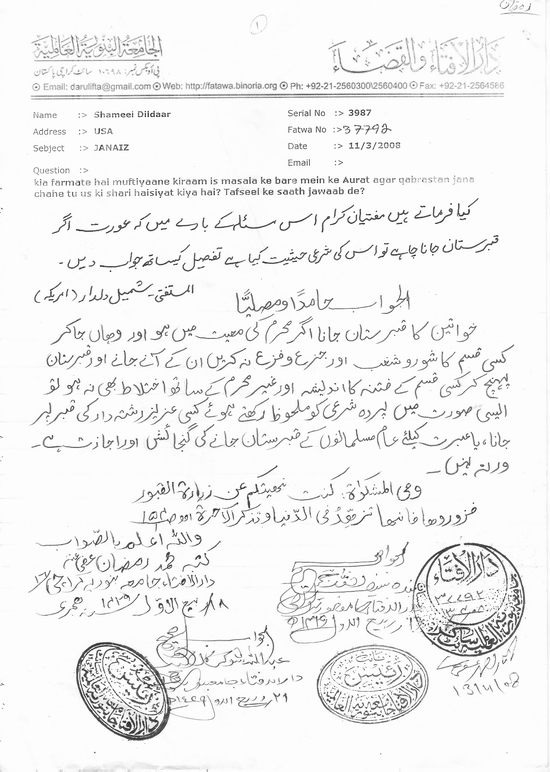 1
الجامعة البنورية العالمية
دار الافتاء والقضاء
پی او بکس نمبر: ۱۰۶۹۸ سائٹ کراچی پاکستان
Email: darulifta@gmail.com Web: http://fatawa.binoria.org Ph: +92-21-2560300\2560400 Fax: +92-21-2564586
Name :> Shameei Dildaar
Serial No :> 3987
Address :> USA
Fatwa No :> 37792
Sebject :> JANAIZ
Date :> 11/3/2008
Email :>
Question :>
kia farmate hai muftiyaane kiraam is masala ke bare mein ke Aurat agar qabrastan jana
chahe tu us ki shari haisiyat kiya hai? Tafseel ke saath jawaab de?
کیا فرماتے ہیں مفتیان کرام اس مسئلہ کے بارے میں کہ عورت اگر
قبرستان جانا چاہے تو اس کی شرعی حیثیت کیا ہے تفصیل کیساتھ جواب دیں۔
المستفتی۔ شمیل دلدار (امریکہ)
الجواب حامدًا ومصلیًا
خواتین کا قبرستان جانا اگر محرم کی معیت میں ہو اور وہاں جاکر
کسی قسم کا شور و شغب اور جزع و فزع نہ کریں ان کے آنے جانے اور قبرستان
پہنچ کر کسی قسم کے فتنہ کا اندیشہ اور غیر محرم کے ساتھ اختلاط بھی نہ ہو تو
ایسی صورت میں پردہ شرعی کو ملحوظ رکھتے ہوئے کسی عزیز رشتہ دار کی قبر پر
جانا، یا عبرت کیلئے عام مسلمانوں کے قبرستان جانے کی گنجائش اور اجازت ہے۔
ورنہ نہیں۔
وفی المشکوٰة: کنت نهيتكم عن زيارة القبور
فزوروها فانها تزهد فی الدنيا وتذكر الآخرة
والله اعلم بالصواب
کتبہ محمد رمضان عفی عنہ
دارالافتاء جامعہ بنوریہ
ربیع الاول
الجواب
الجواب صحیح
دار الافتاء
رئیس
رئیس